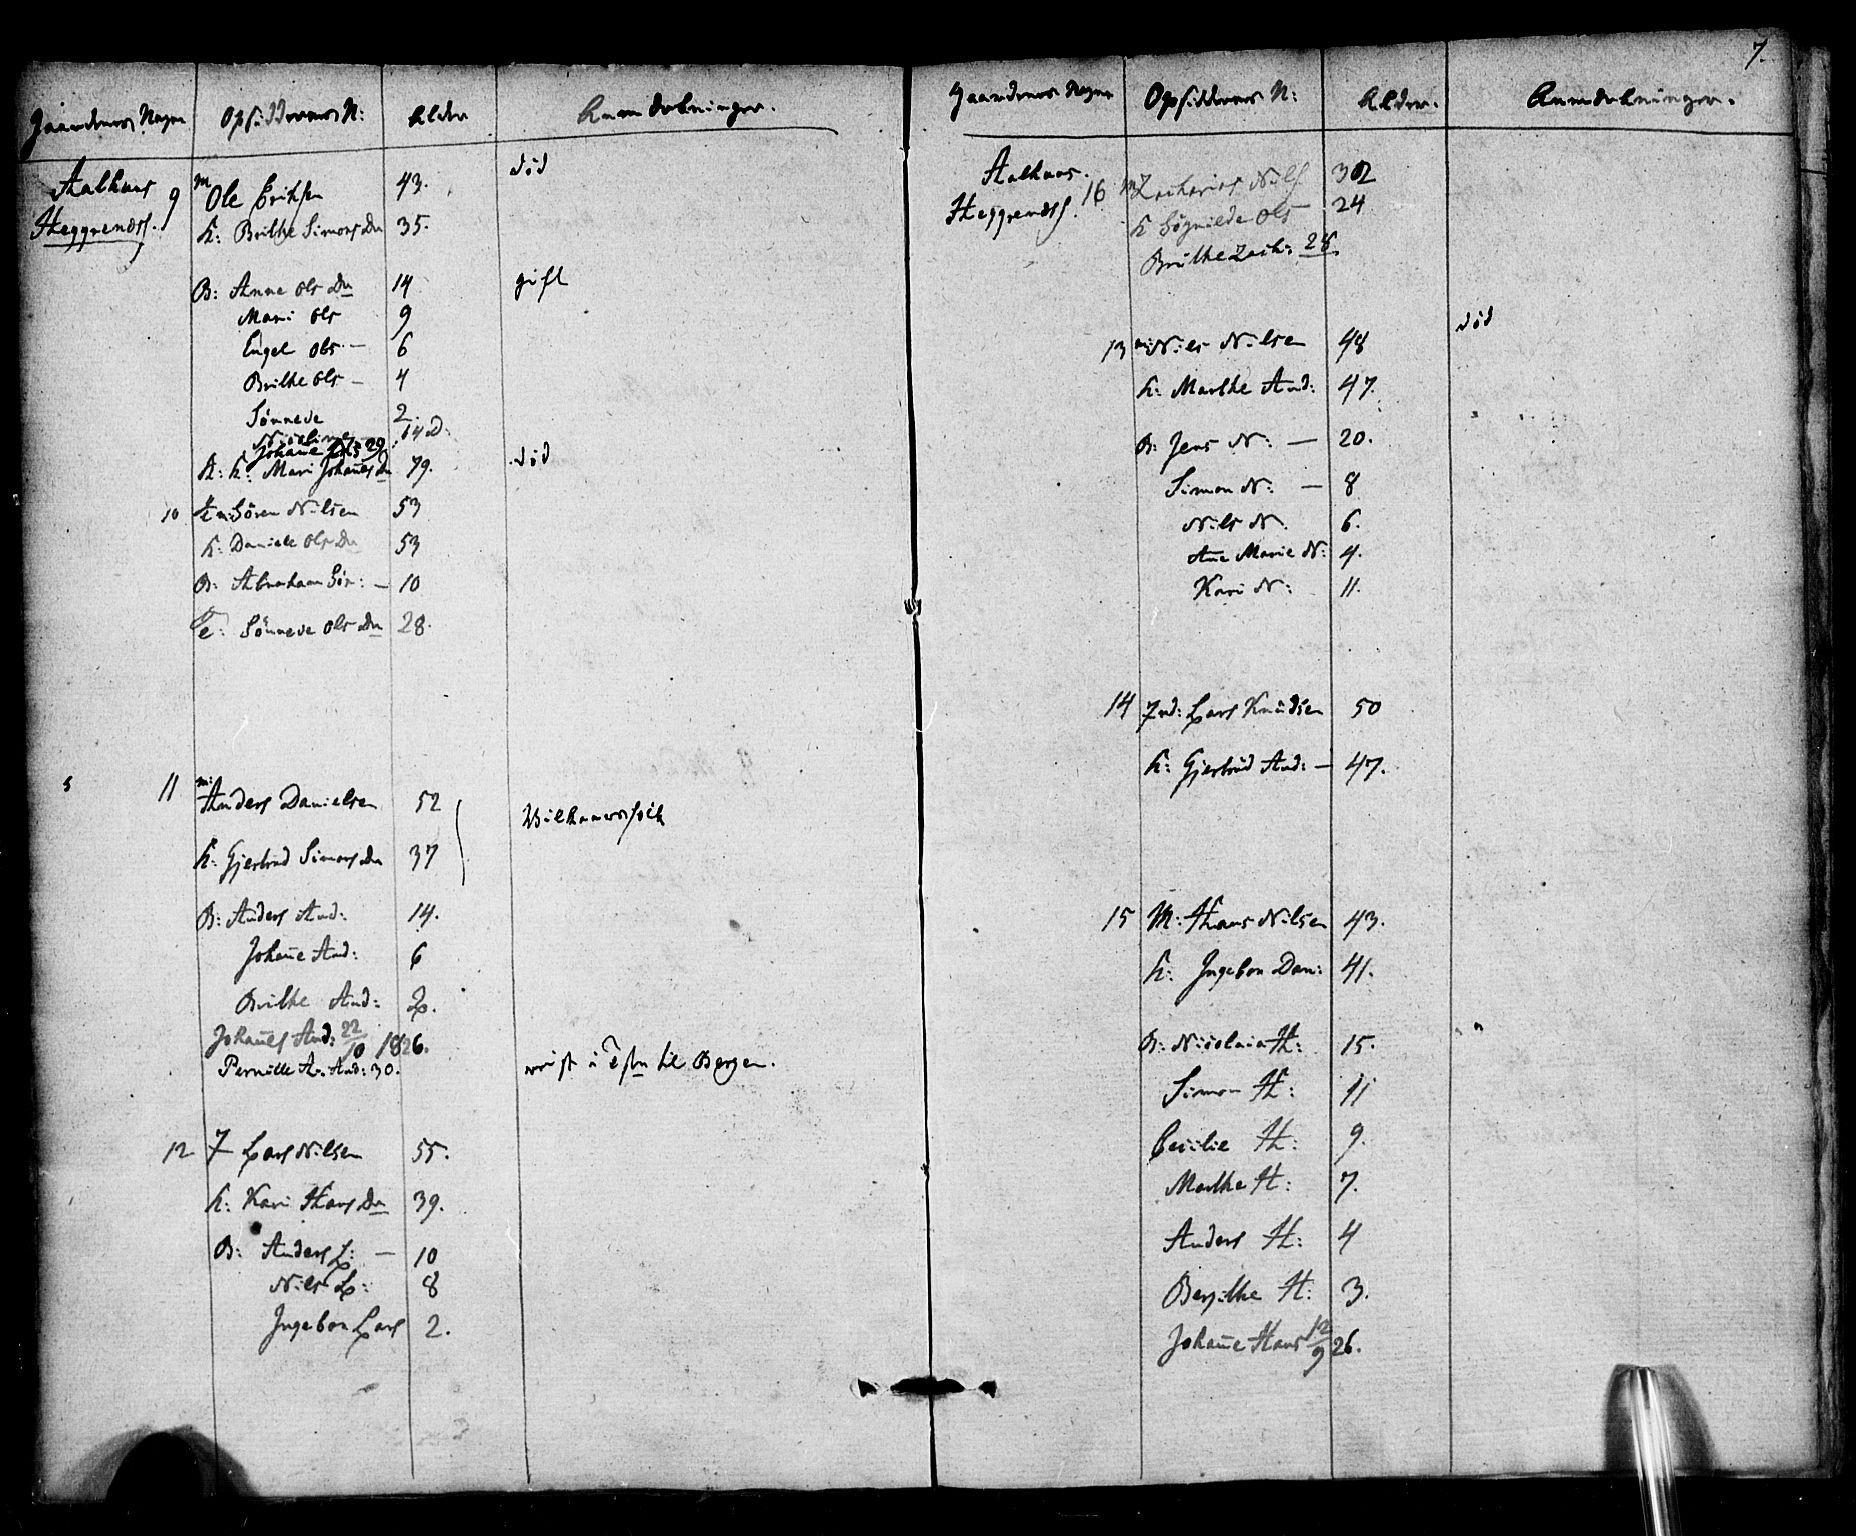 Gaardenes Nagne Opsiddernes N: Alder Anmerkninger.
Aalhuus 9 m Ole Eriksen 43. død
Heggrendsl. K: Brithe Simons Dr 35.
B: Anne Ols Dr 14 gift
Mari Ols 9
Engel Ols — 6
Brithe Ols — 4
Sønneve 2.
Nicoline 14 D.
Johañe 29
K: Mari Johañes Dr 79. død
10 Søren Nilsen 53
K: Daniele Ols Dr 53
B: Abraham Sør: — 10
Te: Sønneve Ols Dr 28.
11 m: Anders Danielsen 52
K: Gjertrud Simons Dr 37
B: Anders And: 14.
Johañe And: 6
Brithe And: 2.
Johañes And: 22/10 1826.
Pernille A. And: 30. til Bergen.
12 F Lars Nilsen 55.
K: Kari Hans Dr 39.
B: Anders L: — 10
Nils L: 8
Ingebor Lars 2.
7.
Gaardenes Nagne Opsiddernes N: Alder. Anmerkninger.
Aalhuus. 16 m Zacharias Nils 32
Heggrendsl. K Søgnilde Ols — 24
Brithe Zach: 28.
13 m: Nils Nilsen 48 død
K: Marthe And: 47.
B: Jens N: — 20.
Simon N: — 8
Nils N. 6.
Añe Marie N: 4.
Kari N: 11.
14 Lars Knudsen 50
K: Gjertrud And: — 47.
15 M: Hans Nilsen 43.
K: Ingebor Dan: 41.
B: Nicolai H: 15.
Simon H: 11
Cecilie H: 9.
Marthe H: 7.
Anders H: 4
Berjithe H: 3.
Johañe Hans 12/9 26.